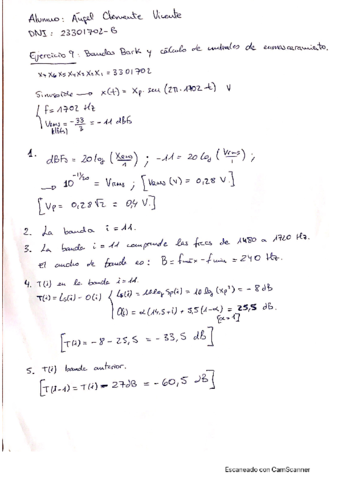 Alumno: Ángel Clemente Vicente
DNI: 23301702-B
Ejercicio 9: Bandas Bark y cálculo de umbrales de enmascaramiento.
X₇X₆X₅X₄X₃X₂X₁ = 3301702
Sinusoide → x(t) = Xp sen (2π·1702·t) V
f = 1702 Hz
Vrms = -33/3 = -11 dBFS
1. dBFS = 20 log (Xrms/1) ; -11 = 20 log (Vrms/1) ;
→ 10^-11/20 = Vrms ; [Vrms (V) = 0,28 V]
[Vp = 0,28√2 = 0,4 V.]
2. La banda i = 11.
3. La banda i = 11 comprende las frecs de 1480 a 1720 Hz.
El ancho de banda es: B = fmáx - fmin = 240 Hz.
4. T(i) en la banda i = 11.
T(i) = Ls(i) - O(i) { Ls(i) = 10 log Sp(i) = 10 log (Xp²) = -8 dB
O(i) = α(14,5+i) + 5,5(1-α) = 25,5 dB.
[α=1]
[T(i) = -8 - 25,5 = -33,5 dB]
5. T(i) banda anterior.
[T(i-1) = T(i) - 27dB = -60,5 dB]
Escaneado con CamScanner